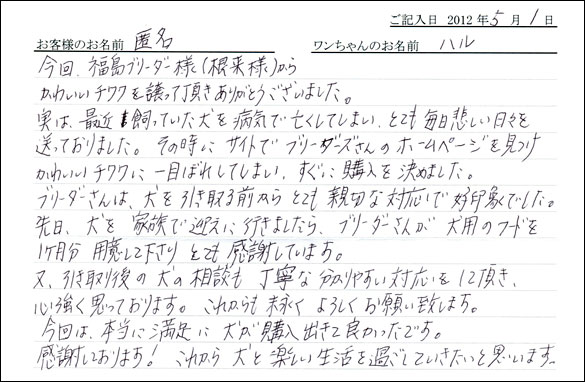 ご記入日 2012年5月1日
お客様のお名前 匿名 ワンちゃんのお名前 ハル
今回、福島ブリーダー様(根来様)から
かわいいチワワを譲って頂きありがとうございました。
実は、最近飼っていた犬を病気で亡くしてしまい、とても毎日悲しい日々を
送っておりました。その時にサイトでブリーダーズさんのホームページを見つけ
かわいいチワワに一目ぼれしてしまい、すぐに購入を決めました。
ブリーダーさんは、犬を引き取る前からとても親切な対応で好印象でした。
先日、犬を家族で迎えに行きましたら、ブリーダーさんが犬用のフードを
1ヶ月分用意して下さりとても感謝しています。
又、引き取り後の犬の相談も丁寧な分かりやすい対応をして頂き、
心強く思っております。これからも末永くよろしくお願い致します。
今回は、本当に満足に犬が購入出きて良かったです。
感謝しております!これから犬と楽しい生活を過ごしていきたいと思います。